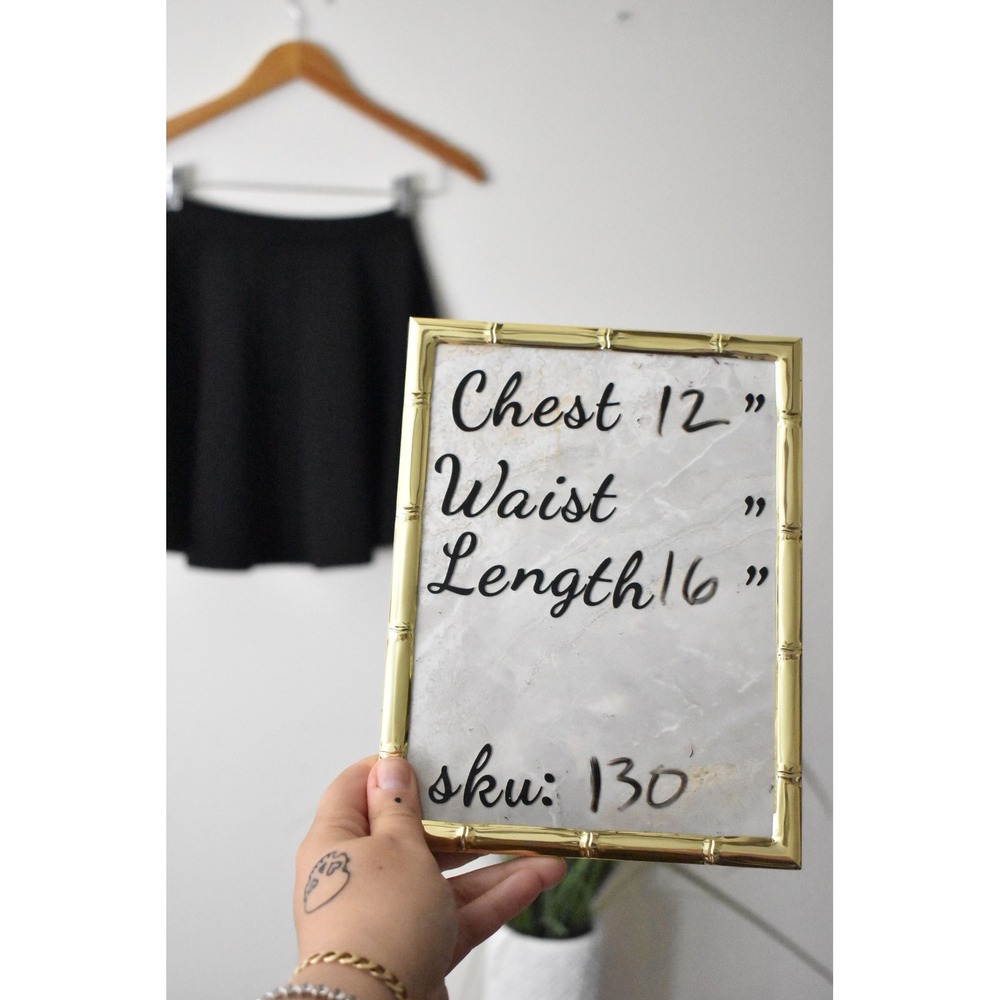 Chest 12 ”
Waist ”
Length 16 ”
sku: 130